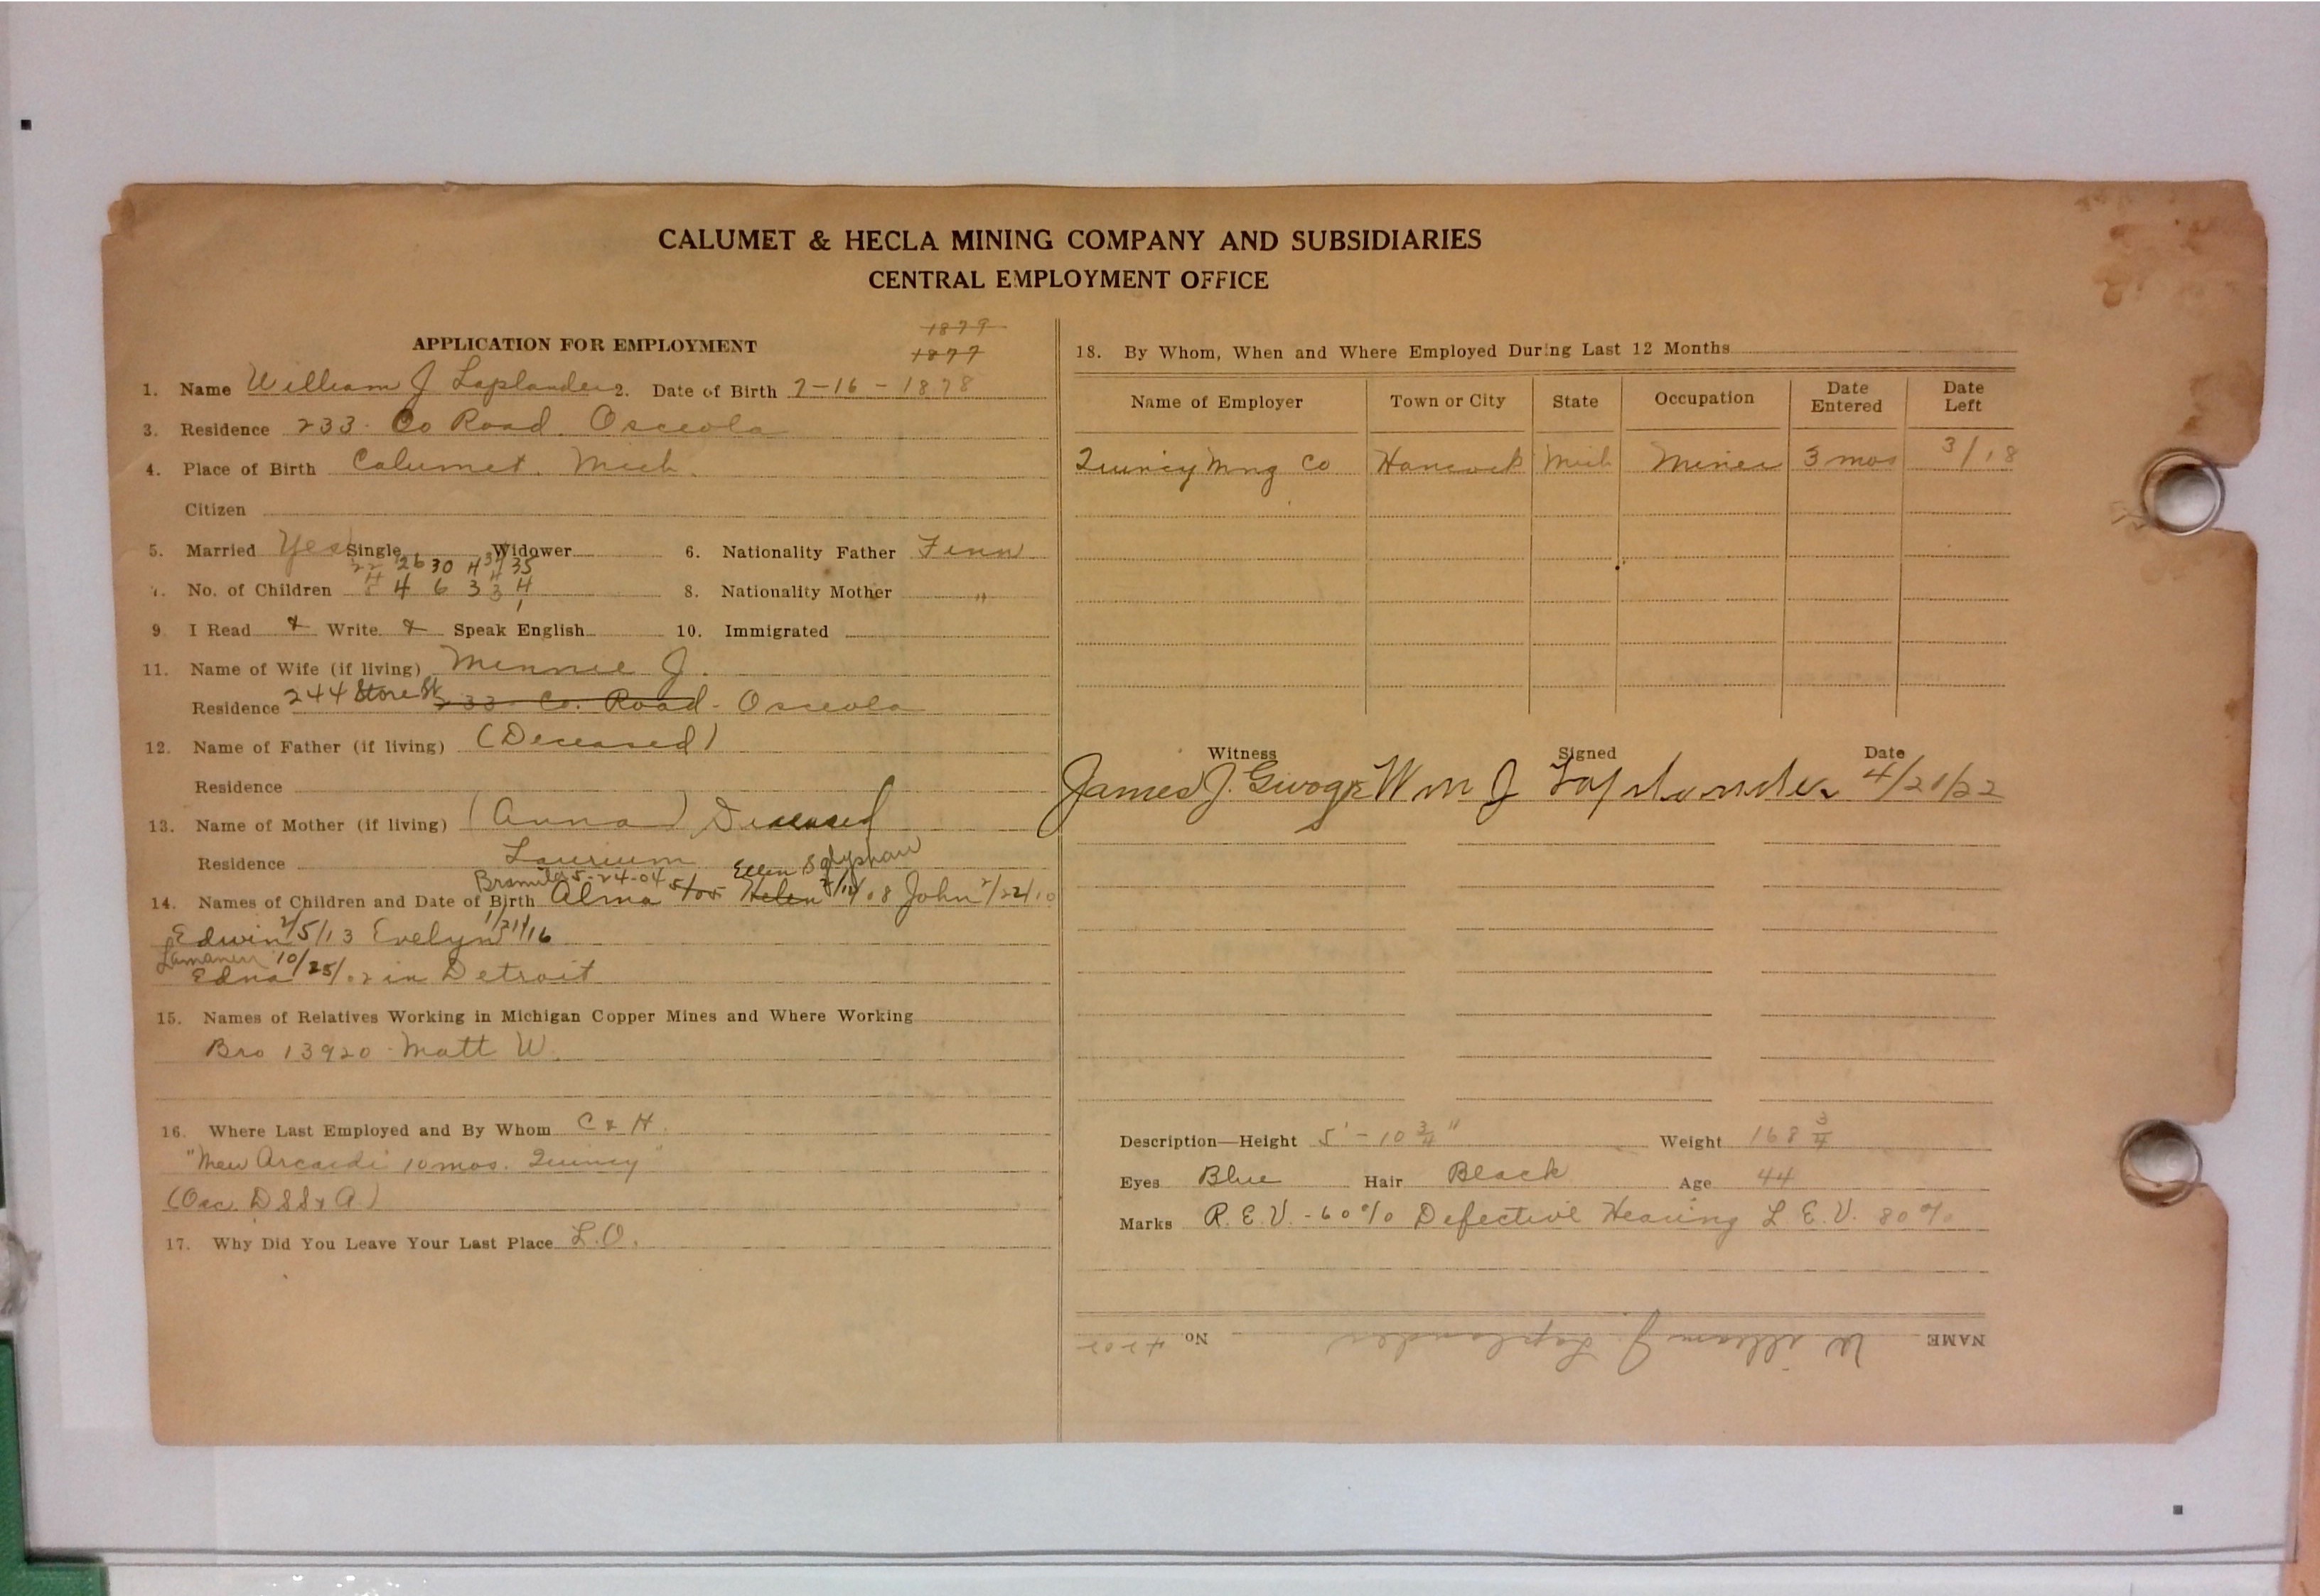 CALUMET & HECLA MINING COMPANY AND SUBSIDIARIES
CENTRAL EMPLOYMENT OFFICE
APPLICATION FOR EMPLOYMENT
1879
1877
1. Name William J Laplander 2. Date of Birth 7-16-1878
3. Residence 233. Co Road. Osceola
4. Place of Birth Calumet. Mich.
Citizen
5. Married Yes Single Widower 6. Nationality Father Finn
22 26 30 34 35
7. No. of Children 4 6 3 3 4 8. Nationality Mother "
9 I Read & Write & Speak English 10. Immigrated
11. Name of Wife (if living) Minnie J.
Residence 244 Store St 233 Co. Road - Osceola
12. Name of Father (if living) (Deceased)
Residence
13. Name of Mother (if living) (Anna) Deceased
Residence Laurium
5-24-04 Ellen
14. Names of Children and Date of Birth Alma Helen John 2/22/10
Edwin 2/5/13 Evelyn 1/21/16
Edna 10/25/02 in Detroit
15. Names of Relatives Working in Michigan Copper Mines and Where Working
Bro 13920 - Matt W.
16. Where Last Employed and By Whom C & H.
"New Arcardi 10 mos. Quincy"
(Osc. D S S & A)
17. Why Did You Leave Your Last Place L.O.
18. By Whom, When and Where Employed During Last 12 Months
Name of Employer Town or City State Occupation Date Entered Date Left
Quincy Mng Co Hancock Mich Miner 3 mos 3/18
Witness Signed Date
James J. Wm J Laplander 4/21/22
Description—Height 5' - 10 3/4" Weight 168 3/4
Eyes Blue Hair Black Age 44
Marks R.E.V. - 60% Defective Hearing L.E.V. 80%
NAME William J. Laplander No.